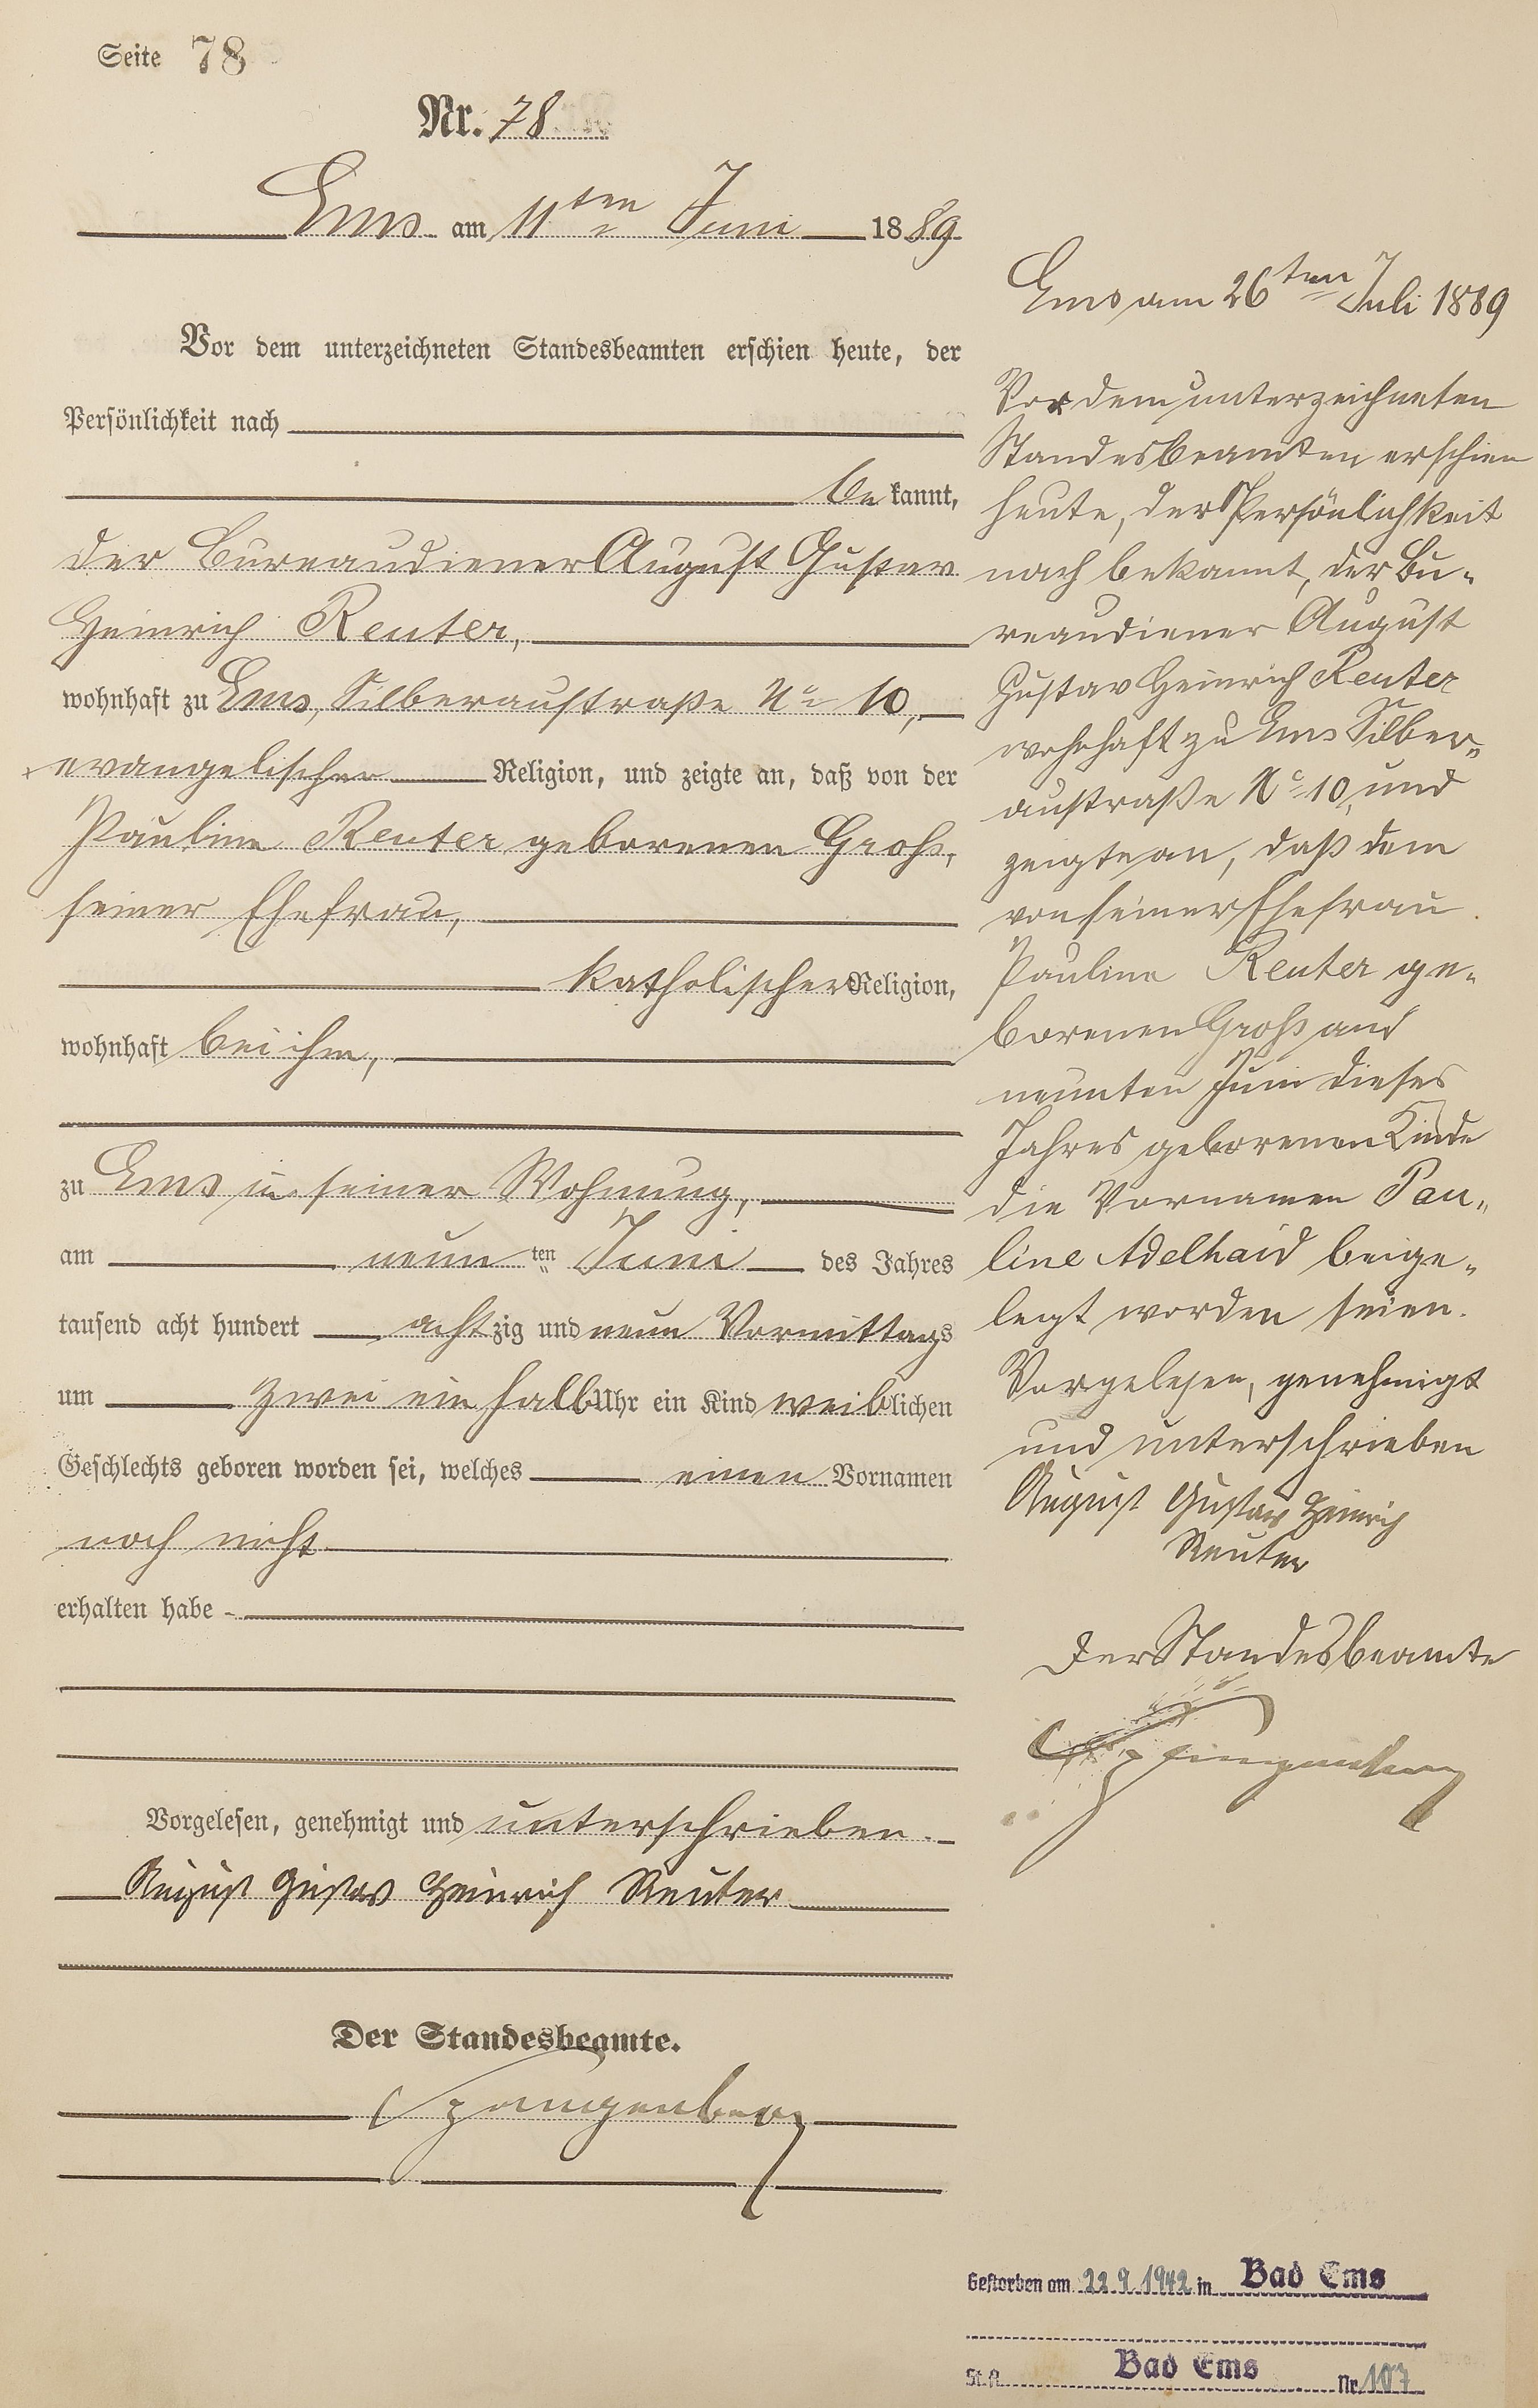 Seite 78
Nr. 78
Ems am 11ten Juni 1889
Vor dem unterzeichneten Standesbeamten erschien heute, der
Persönlichkeit nach
bekannt,
der Bureaudiener August Gustav
Heinrich Reuter,
wohnhaft zu Ems, Silberaustraße No 10,
evangelischer Religion, und zeigte an, daß von der
Pauline Reuter geborenen Groß,
seiner Ehefrau,
katholischer Religion,
wohnhaft bei ihm,
zu Ems in seiner Wohnung,
am neunten Juni des Jahres
tausend acht hundert achtzig und neun Vormittags
um zwei ein halb Uhr ein Kind weiblichen
Geschlechts geboren worden sei, welches einen Vornamen
noch nicht
erhalten habe
Vorgelesen, genehmigt und unterschrieben.
August Gustav Heinrich Reuter
Der Standesbeamte.
Spangenberg
Ems am 26ten Juli 1889
Vor dem unterzeichneten
Standesbeamten erschien
heute, der Persönlichkeit
nach bekannt, der Bu-
reaudiener August
Gustav Heinrich Reuter
wohnhaft zu Ems Silber-
austraße No 10, und
zeigte an, daß dem
von seiner Ehefrau
Pauline Reuter ge-
borenen Groß am
neunten Juni dieses
Jahres geborenen Kinde
die Vornamen Pau-
line Adelhaid beige-
legt worden seien.
Vorgelesen, genehmigt
und unterschrieben
August Gustav Heinrich
Reuter
Der Standesbeamte
Spangenberg
Gestorben am 22.9.1942 in Bad Ems
St.A. Bad Ems Nr. 107